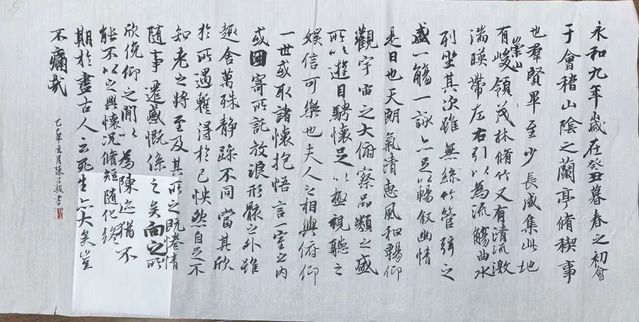 永和九年歲在癸丑暮春之初會
于會稽山陰之蘭亭脩稧事
也群賢畢至少長咸集此地
有崇山峻領茂林脩竹又有清流激
湍暎帶左右引以為流觴曲水
列坐其次雖無絲竹管弦之
盛一觴一詠亦足以暢敘幽情
是日也天朗氣清惠風和暢仰
觀宇宙之大俯察品類之盛
所以遊目騁懷足以極視聽之
娛信可樂也夫人之相與俯仰
一世或取諸懷抱悟言一室之內
或因寄所託放浪形骸之外雖
趣舍萬殊靜躁不同當其欣
於所遇暫得於己怏然自足不
知老之將至及其所之既惓情
隨事遷感慨係之矣向之所
欣俛仰之閒以為陳迹猶不
能不以之興懷況脩短隨化終
期於盡古人云死生亦大矣豈
不痛哉